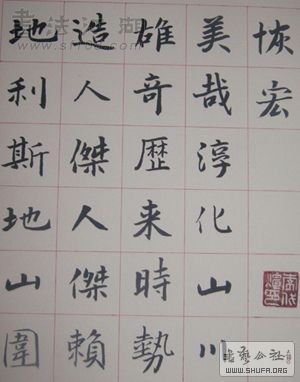 恢宏
美哉淳化山川
雄竒歷来時勢
造人傑人傑賴
地利斯地山圍
WWW.SHUFA.ORG